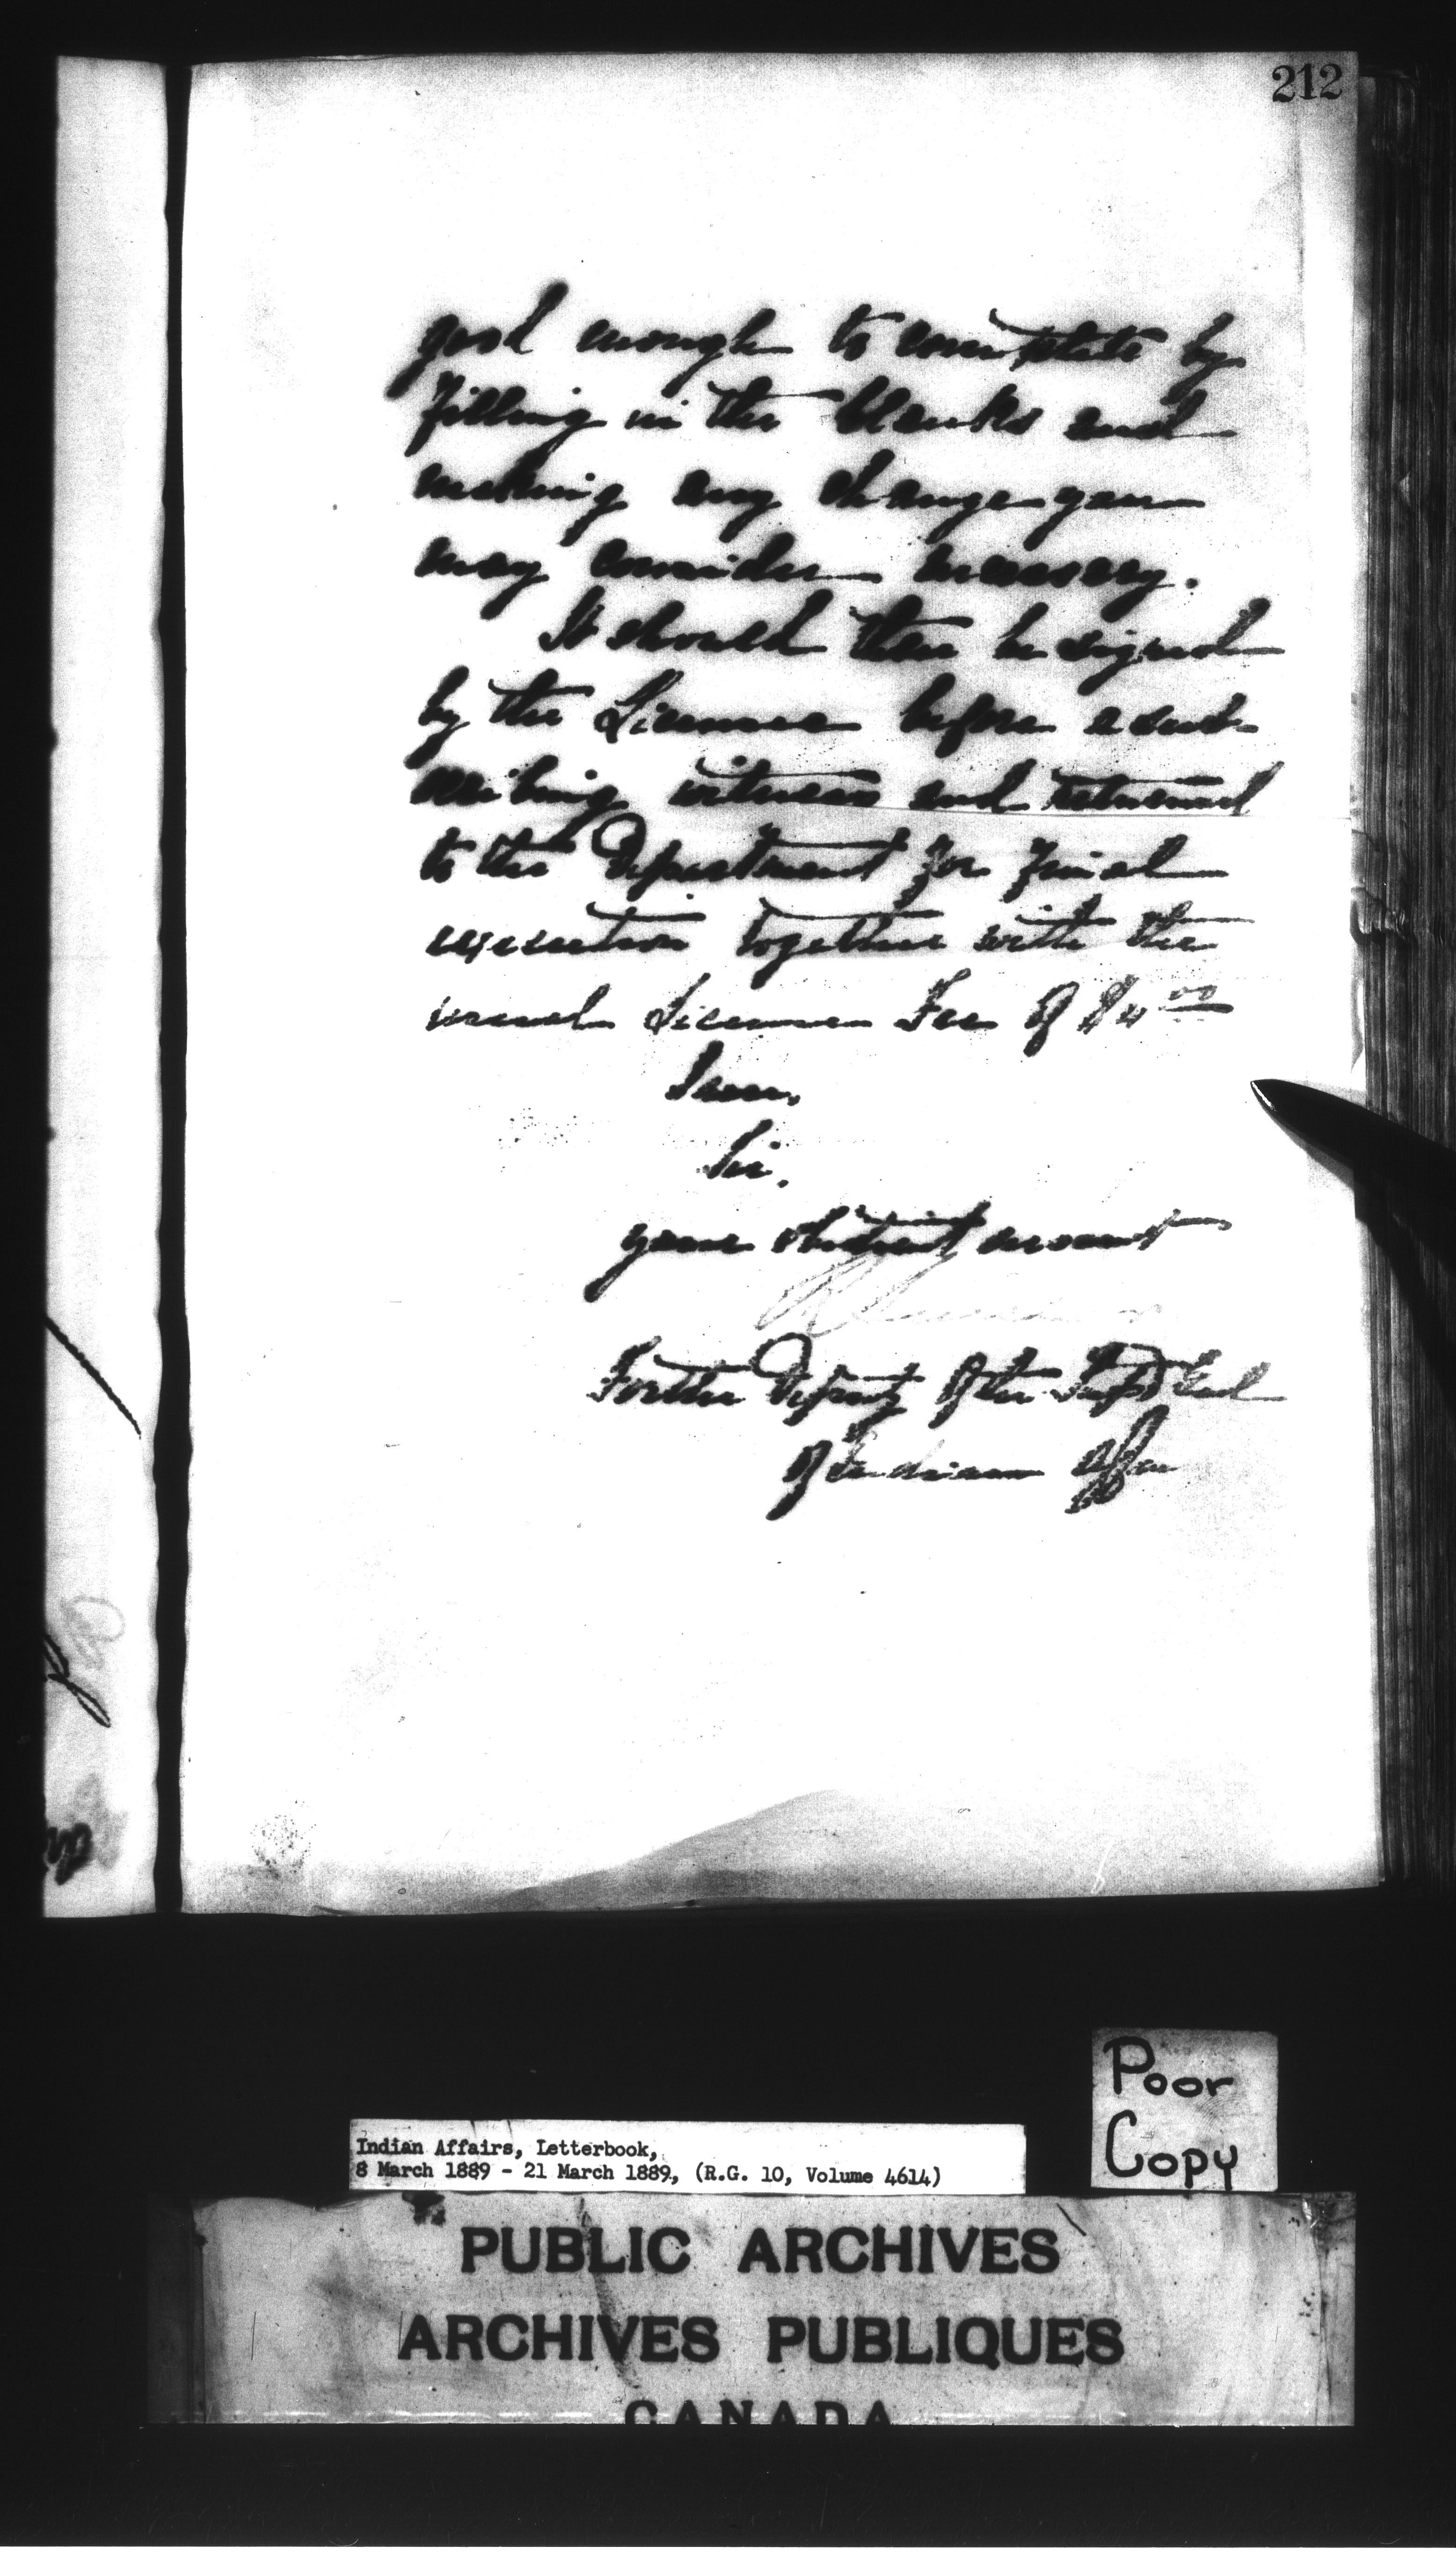 212
good enough to complete by
filling in the blanks and
making any change you
may consider necessary.
It should then be signed
by the Licensee before a sub-
scribing witness and returned
to the Department for final
execution together with the
usual License Fee of $4.00
I am,
Sir,
your obedient servant
For the Deputy of the Supt Genl
of Indian Affrs
Poor
Copy
Indian Affairs, Letterbook,
8 March 1889 - 21 March 1889, (R.G. 10, Volume 4614)
PUBLIC ARCHIVES
ARCHIVES PUBLIQUES
CANADA